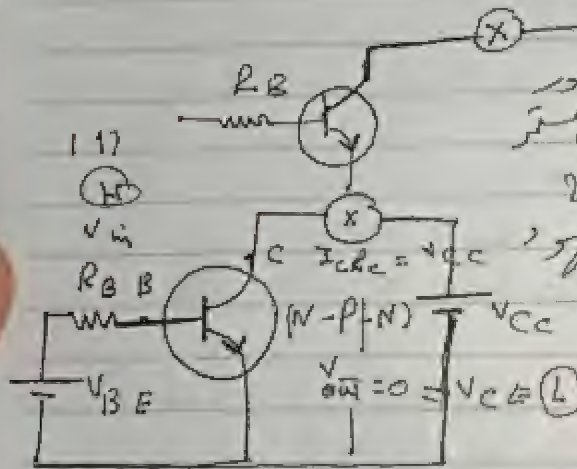 X
R_B
H
V_in
X
C I_C R_C = V_CC
R_B B
(N-P-N)
V_CC
V_BE
V_out = 0 = V_CE = L